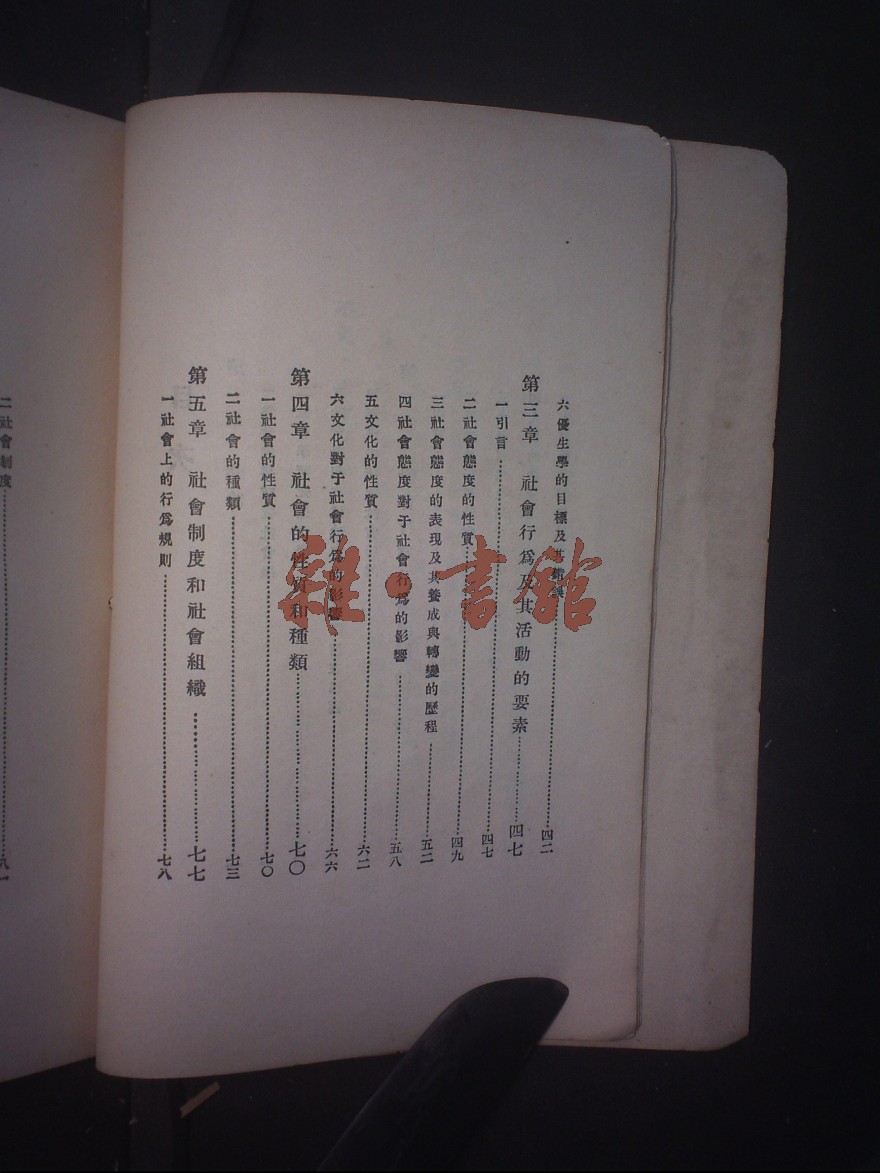 六 優生學的目標及其錯誤……四二
第三章 社會行爲及其活動的要素……四七
一 引言……四七
二 社會態度的性質……四九
三 社會態度的表現及其養成與轉變的歷程……五二
四 社會態度對于社會行爲的影響……五八
五 文化的性質……六二
六 文化對于社會行爲的影響……六六
第四章 社會的性質和種類……七〇
一 社會的性質……七〇
二 社會的種類……七三
第五章 社會制度和社會組織……七七
一 社會上的行爲規則……七八
二 社會制度……八一
雜·書館